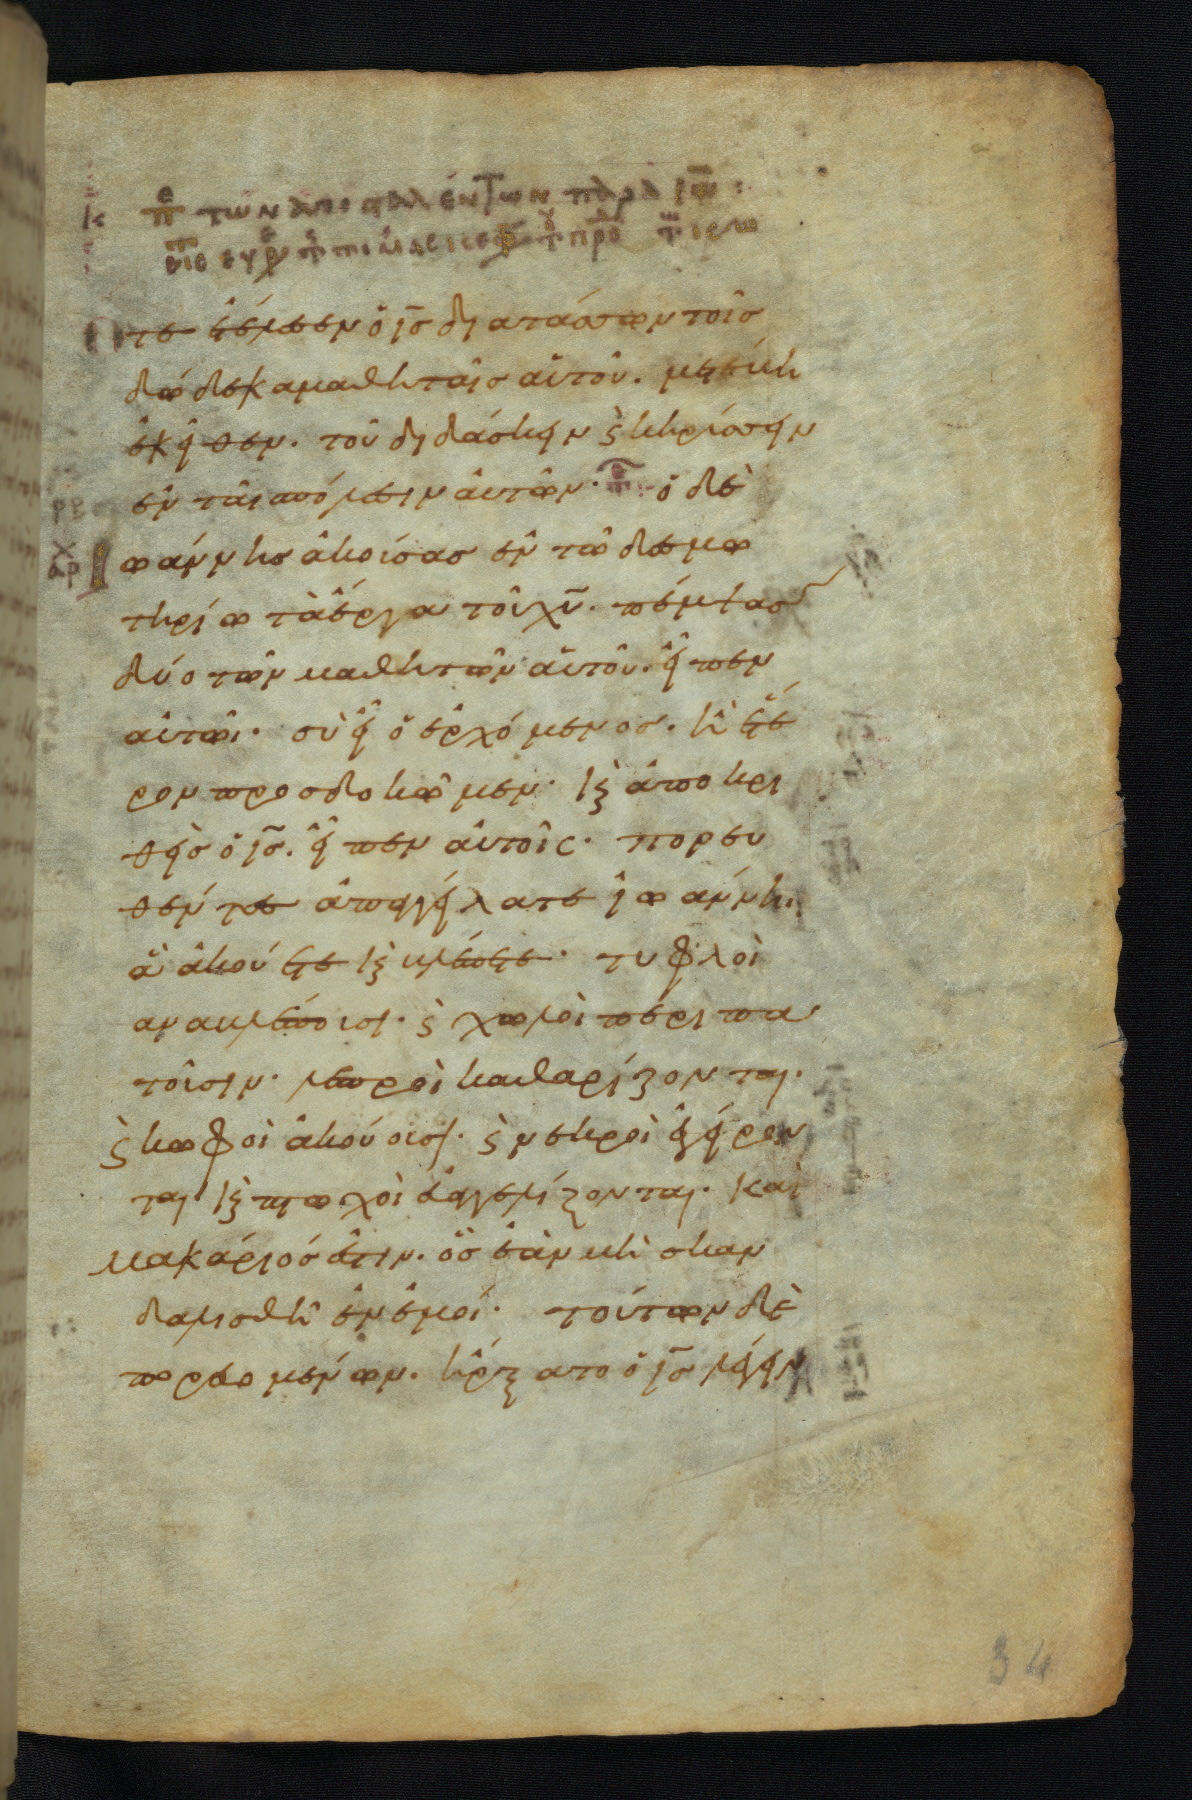 Κ περὶ τῶν ἀποσταλέντων παρὰ ἰω :
ὅτε ἐτέλεσεν ὁ ις διατάσσων τοῖς
δώδεκα μαθηταῖς αὐτοῦ. μετέβη
ἐκεῖθεν. τοῦ διδάσκειν ϗ κηρύσσειν
ἐν ταῖς πόλεσιν αὐτῶν· ὁ δὲ
Ἰωάννης ἀκούσας ἐν τῶ δεσμω
τηρίω τὰ ἔργα τοῦ χυ. πέμψας
δύο τῶν μαθητῶν αὐτοῦ. εἶπεν
αὐτῶι· σὺ εἶ ὁ ἐρχόμενος. ἢ ἕτε
ρον προσδοκῶμεν· ϗ ἀποκρι
θεὶς ὁ ις. εἶπεν αὐτοῖς· πορευ
θέντες ἀπαγγείλατε ἰωάννηι
ἃ ἀκούετε ϗ βλέπετε· τυφλοὶ
αναβλέπουσι· ϗ χωλοὶ περιπα
τοῦσιν· λεπροὶ καθαρίζονται·
ϗ κωφοὶ ἀκούουσι· ϗ νεκροὶ ἐγείρον
ται ϗ πτωχοὶ εὐαγγελίζονται· και
μακάριός ἐστιν. ὃς ἐὰν μὴ σκαν
δαλισθῆ ἐν ἐμοί· τούτων δὲ
πορευομένων. ἤρξατο ὁ ις λέγειν
34